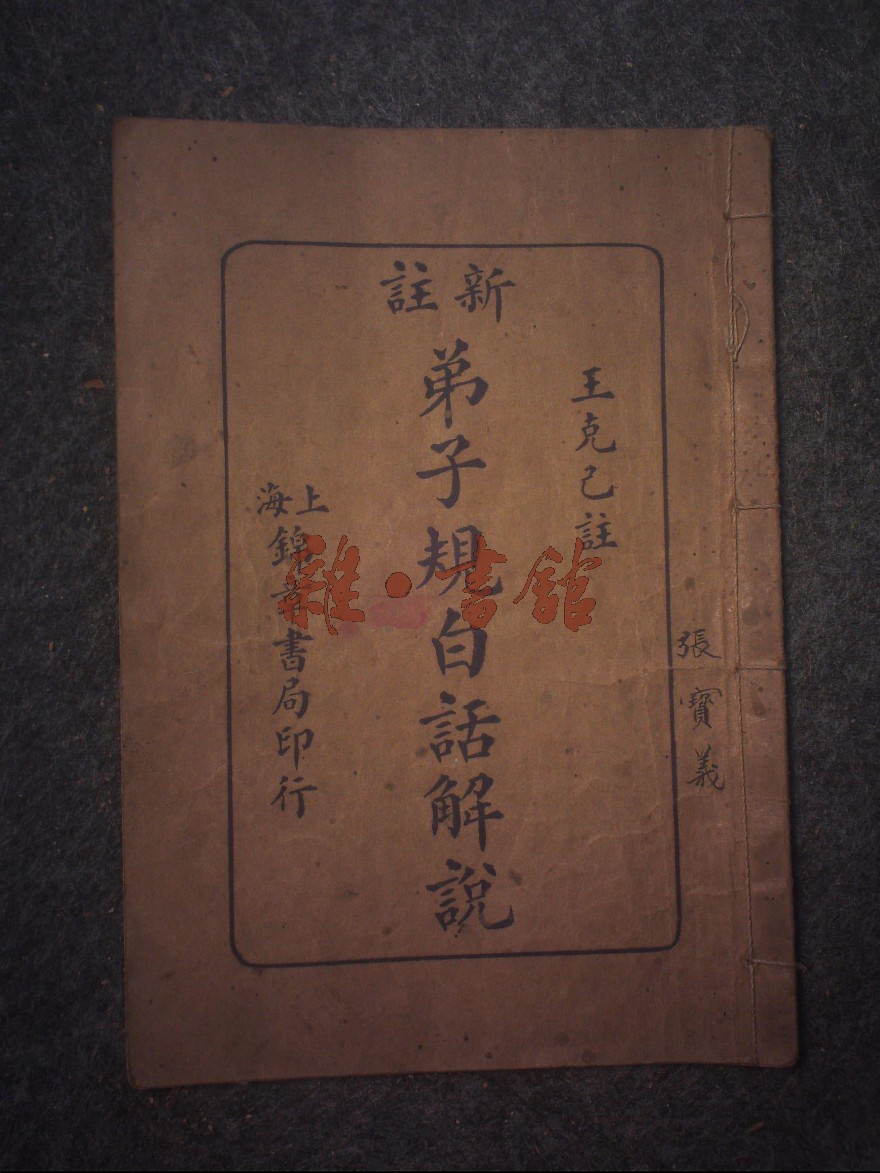 新註
王克己註
弟子規白話解說
上海
錦章書局印行
張寶義
雜·書館